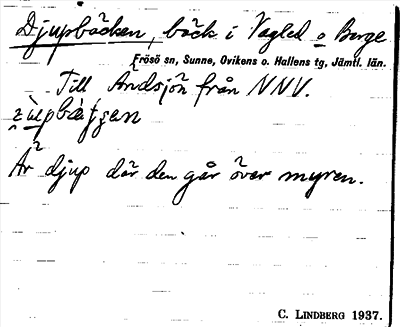 Djupbäcken, bäck i Vagled o Berge
Frösö sn, Sunne, Ovikens o. Hallens tg, Jämtl. län.
Till Ändsjön från NNV.
Är djup där den går över myren.
C. LINDBERG 1937.